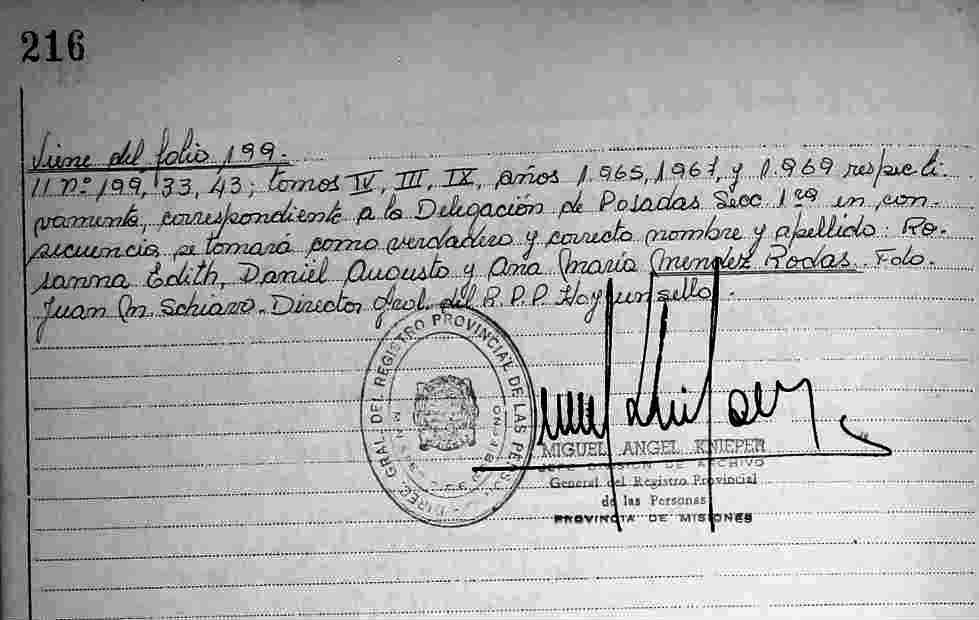 216
Viene del folio 199.
11 nº 199, 33, 43; tomos IV, III, IX, años 1.965, 1.967, y 1.969 respecti-
vamente, correspondiente a la Delegación de Posadas Secc 1ra en con-
secuencia se tomará como verdadero y correcto nombre y apellido: Ro-
sanna Edith, Daniel Augusto y Ana María Mendez Rodas. Fdo.
Juan M. Schiavo. Director Gral. del R.P.P. Hay un sello.
DIREC. GRAL. DEL REGISTRO PROVINCIAL DE LAS PERSO
MIGUEL ANGEL KNIEPER
JEFE DIVISION DE ARCHIVO
General del Registro Provincial
de las Personas
PROVINCIA DE MISIONES